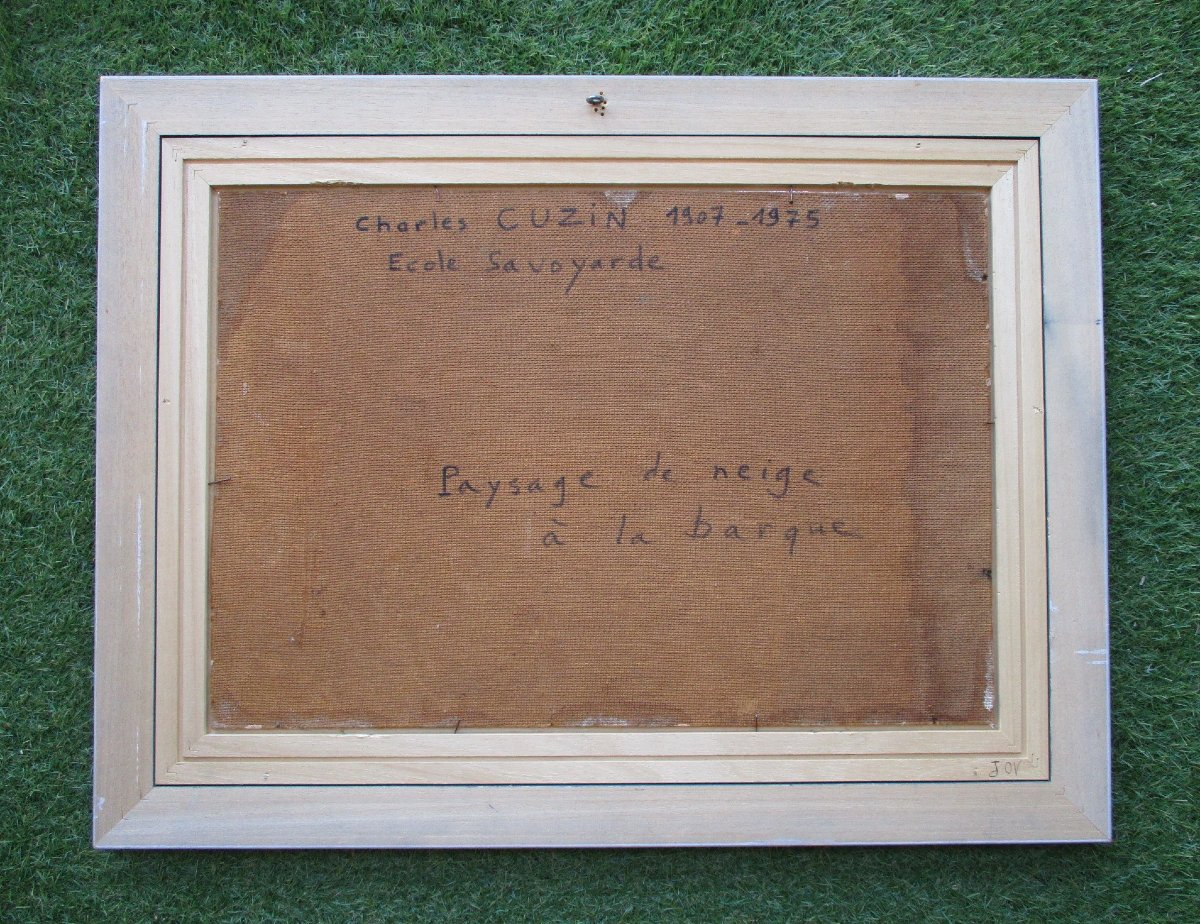 Charles CUZIN 1907-1975
Ecole Savoyarde
Paysage de neige
à la barque